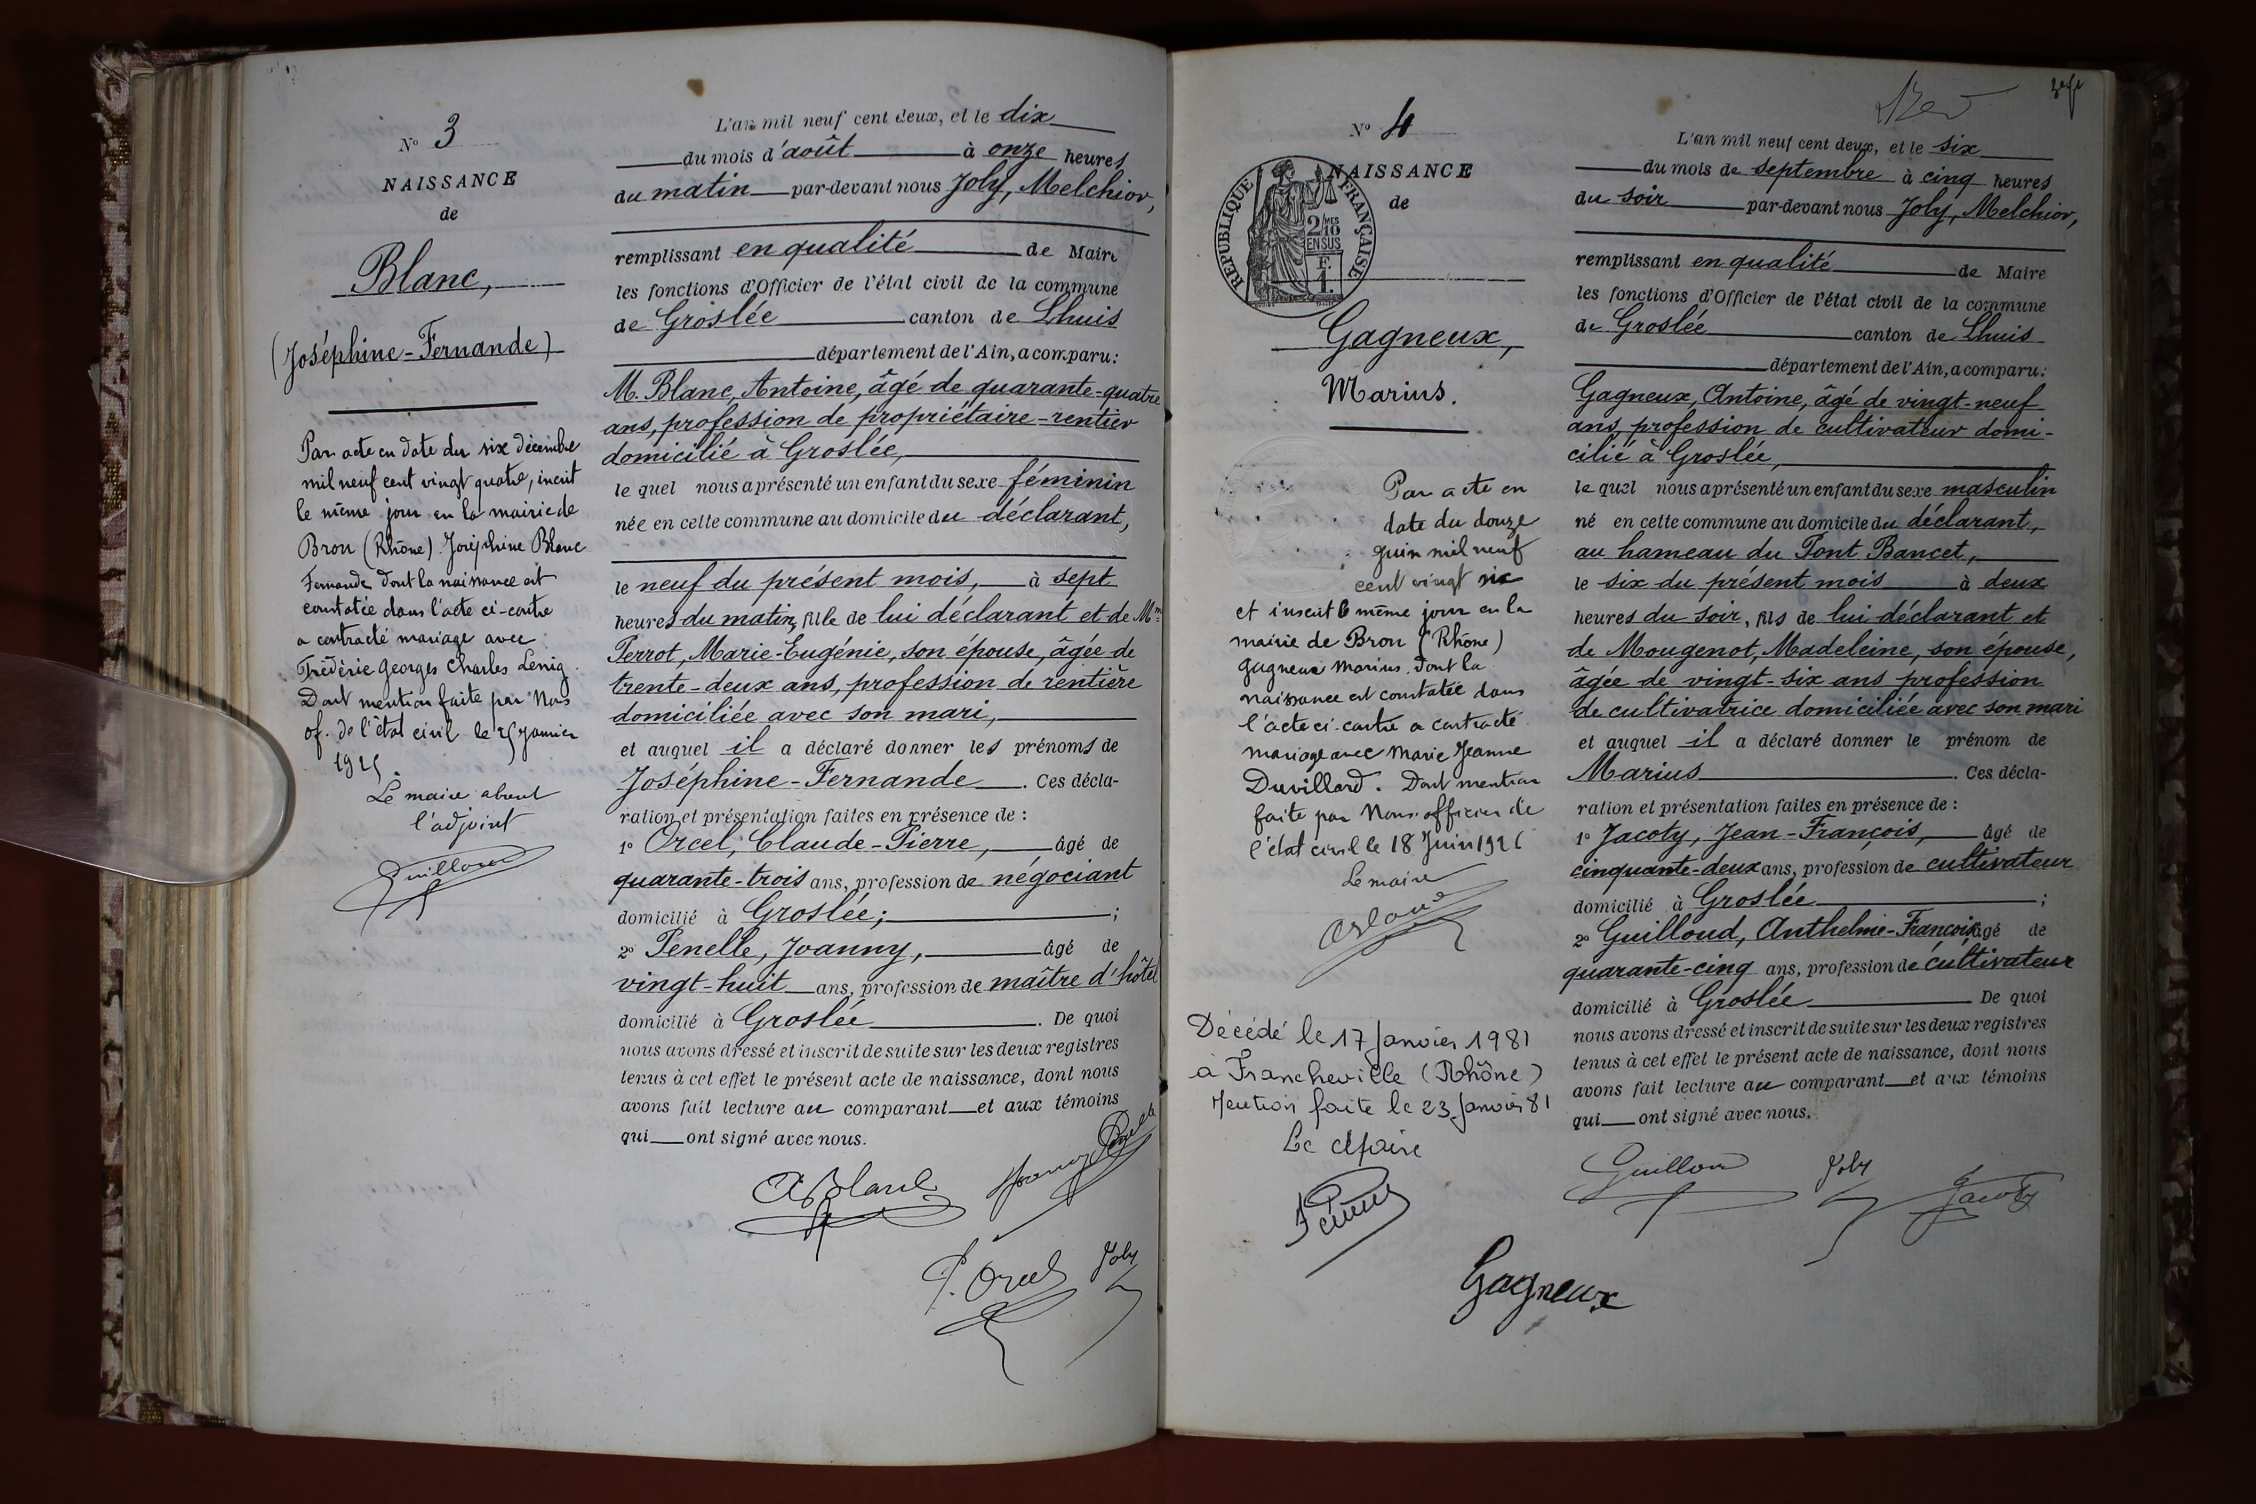 N° 3
NAISSANCE
de
Blanc,
(Joséphine-Fernande)
Par acte en date du six décembre
mil neuf cent vingt quatre, inscrit
le même jour en la mairie de
Bron (Rhône) Joséphine Blanc
Fernande dont la naissance est
constatée dans l'acte ci-contre
a contracté mariage avec
Frédéric Georges Charles Lenig.
Dont mention faite par Nous
of. de l'état civil le janvier
1925.
Le maire absent
l'adjoint
Guilloud
L'an mil neuf cent deux, et le dix
du mois d'août à onze heures
du matin par-devant nous Joly, Melchior,
remplissant en qualité de Maire
les fonctions d'Officier de l'état civil de la commune
de Groslée canton de Lhuis
département de l'Ain, a comparu:
M. Blanc, Antoine, âgé de quarante-quatre
ans, profession de propriétaire-rentier
domicilié à Groslée,
le quel nous a présenté un enfant du sexe féminin
née en cette commune au domicile du déclarant,
le neuf du présent mois, à sept
heures du matin, fille de lui déclarant et de Mme
Perrot, Marie-Eugénie, son épouse, âgée de
trente-deux ans, profession de rentière
domiciliée avec son mari,
et auquel il a déclaré donner les prénoms de
Joséphine-Fernande. Ces décla-
ration et présentation faites en présence de :
1° Orcel, Claude-Pierre, âgé de
quarante-trois ans, profession de négociant
domicilié à Groslée; ;
2° Penelle, Joanny, âgé de
vingt-huit ans, profession de maître d'hôtel
domicilié à Groslée. De quoi
nous avons dressé et inscrit de suite sur les deux registres
tenus à cet effet le présent acte de naissance, dont nous
avons fait lecture au comparant et aux témoins
qui ont signé avec nous.
A Blanc Joanny Penelle
P. Orcel Joly
N° 4
NAISSANCE
de
REPUBLIQUE FRANÇAISE
2/10 MES
EN SUS
F.
1.
Gagneux,
Marius.
Par acte en
date du douze
Juin mil neuf
cent vingt six
et inscrit le même jour en la
mairie de Bron (Rhône)
Gagneux Marius. dont la
naissance est constatée dans
l'acte ci-contre a contracté
mariage avec Marie Jeanne
Duvillard. Dont mention
faite par Nous officier de
l'état civil le 18 Juin 1926
Le maire
Décédé le 17 Janvier 1981
à Francheville (Rhône)
Mention faite le 23 Janvier 81
Le Maire
L'an mil neuf cent deux, et le six
du mois de septembre à cinq heures
du soir par-devant nous Joly, Melchior,
remplissant en qualité de Maire
les fonctions d'Officier de l'état civil de la commune
de Groslée canton de Lhuis
département de l'Ain, a comparu:
Gagneux, Antoine, âgé de vingt-neuf
ans, profession de cultivateur domi-
cilié à Groslée,
le quel nous a présenté un enfant du sexe masculin
né en cette commune au domicile du déclarant,
au hameau du Pont Bancet,
le six du présent mois à deux
heures du soir, fils de lui déclarant et
de Mougenot, Madeleine, son épouse,
âgée de vingt-six ans profession
de cultivatrice domiciliée avec son mari
et auquel il a déclaré donner le prénom de
Marius. Ces décla-
ration et présentation faites en présence de :
1° Jacoty, Jean-François, âgé de
cinquante-deux ans, profession de cultivateur
domicilié à Groslée ;
2° Guilloud, Anthelme-François âgé de
quarante-cinq ans, profession de cultivateur
domicilié à Groslée De quoi
nous avons dressé et inscrit de suite sur les deux registres
tenus à cet effet le présent acte de naissance, dont nous
avons fait lecture au comparant et aux témoins
qui ont signé avec nous.
Guilloud Joly Jacoty
Gagneux